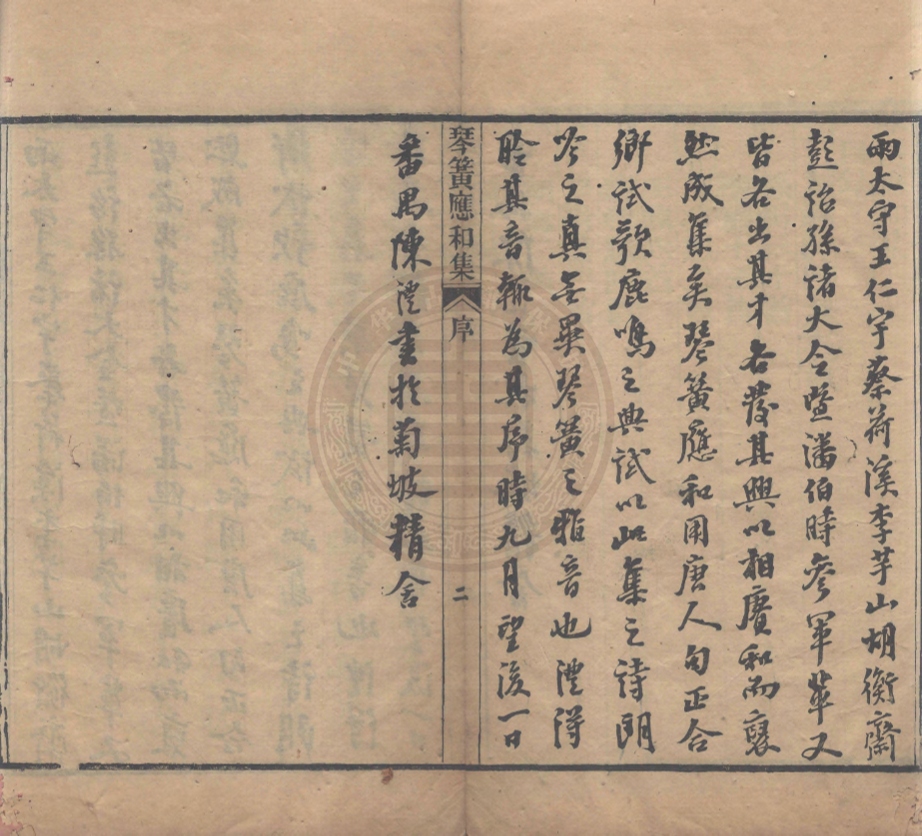 雨太守王仁宇蔡荷溪李芋山胡衡齋
彭詒孫諸大令暨潘伯時參軍華又
皆各出其才各發其興以相賡和而裒
然成集矣琴簧應和用唐人句正合
鄉試歌鹿鳴之典試以此集之詩朗
吟之真無異琴簧之雅音也澧得
聆其音輒為其序時九月望後一日
番禺陳澧書於菊坡精舍
琴簧應和集
序
二